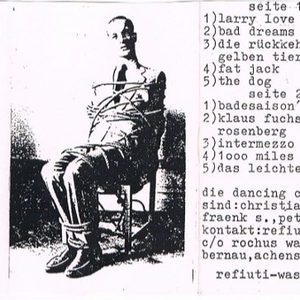 seite 1
1)larry love
2)bad dreams
3)die rückkeh
gelben tier
4)fat jack
5)the dog
seite 2
1)badesaison
2)klaus fuchs
rosenberg
3)intermezzo
4)1ooo miles
5)das leichte
die dancing
sind:christia
fraenk s.,pet
kontakt:refiu
c/o rochus wa
bernau,achens
refiuti-was